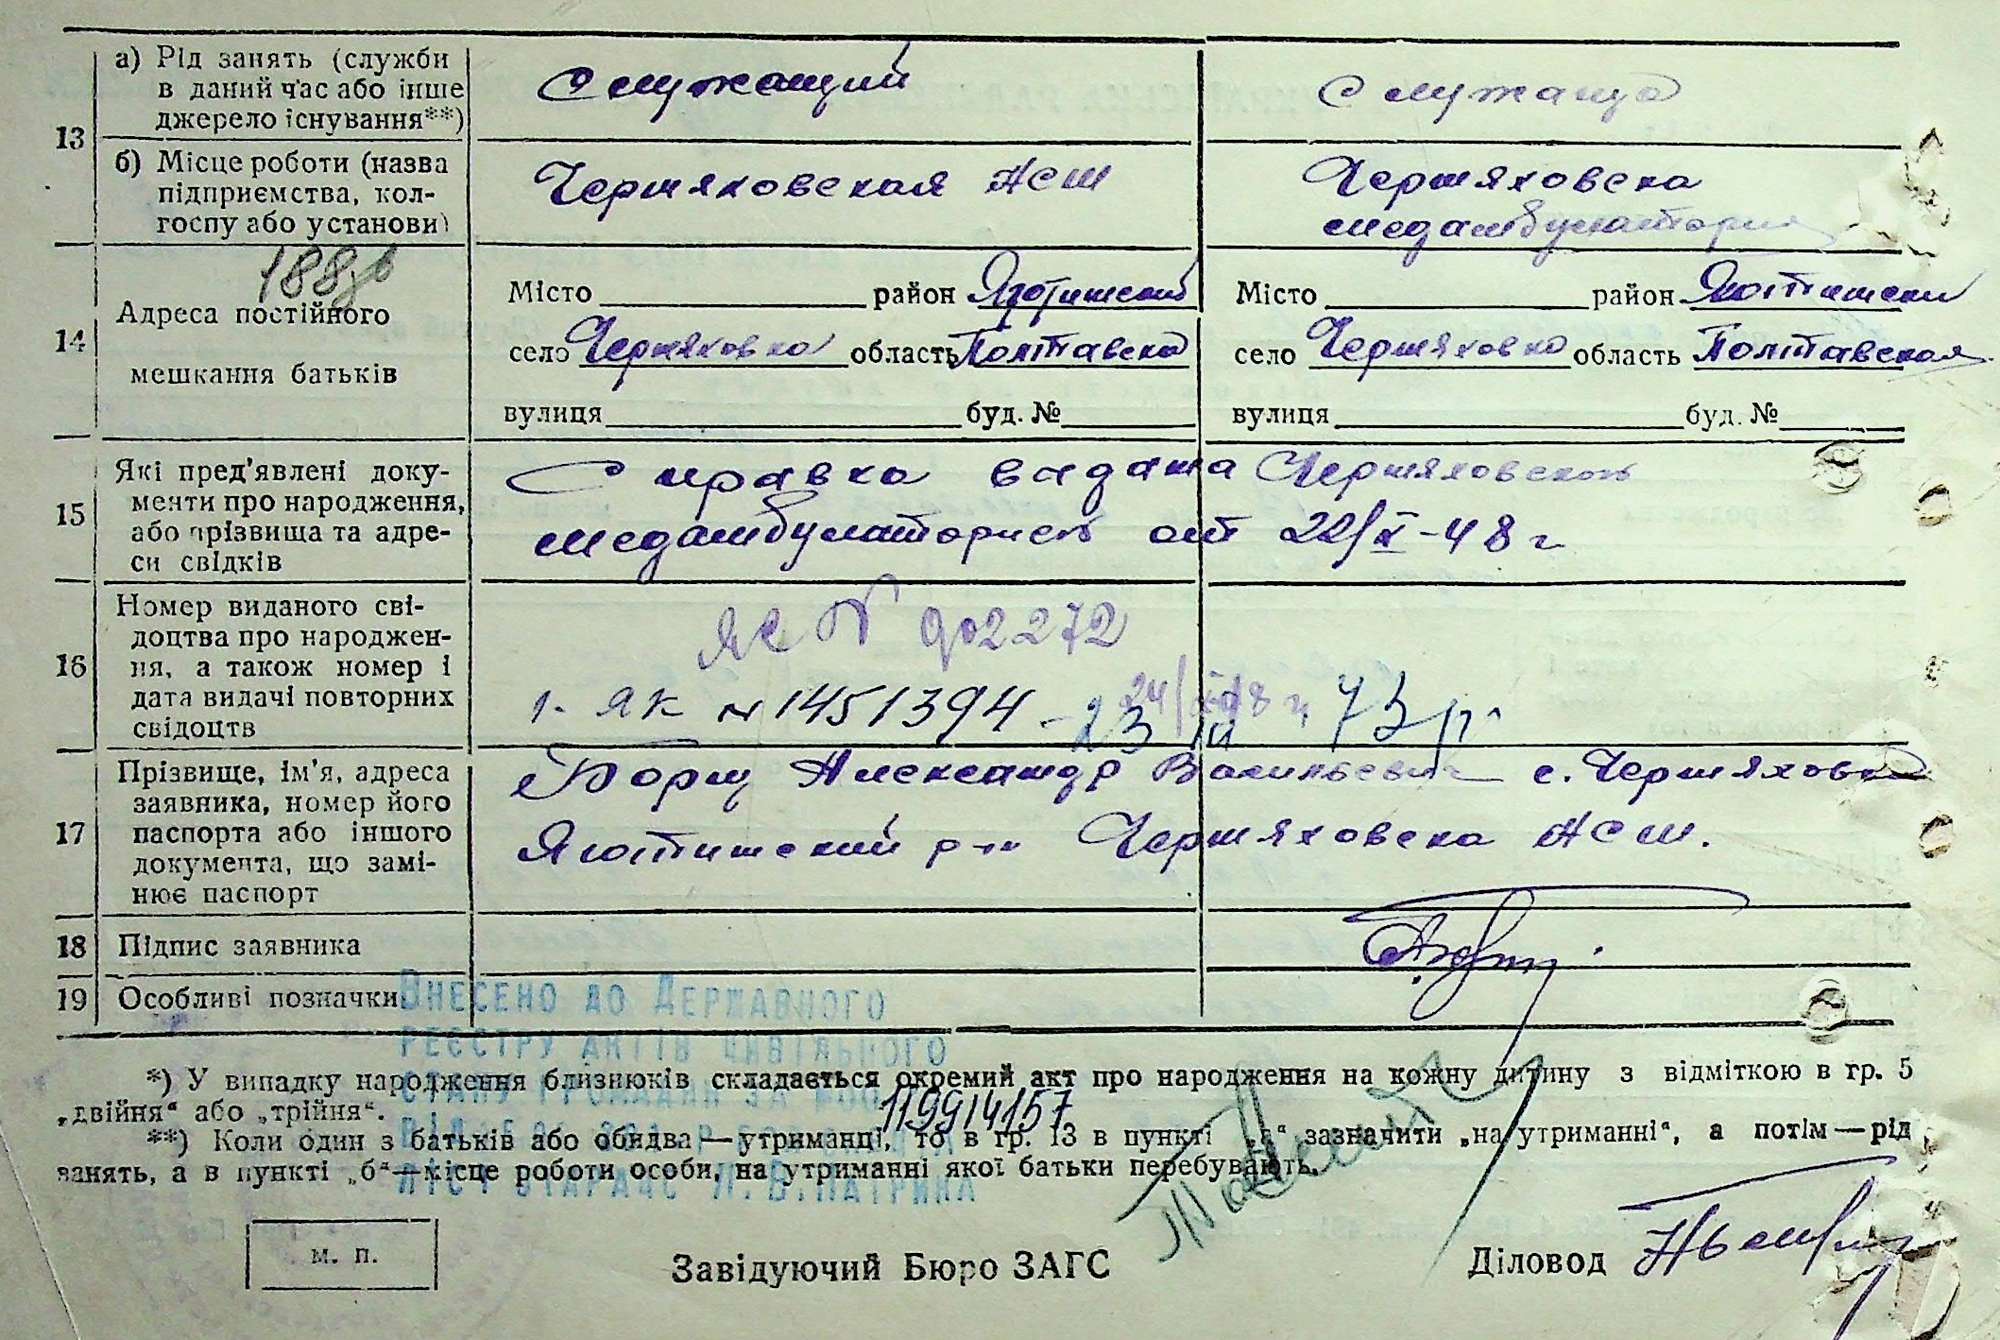 13
а) Рід занять (служби в даний час або інше джерело існування**)
Служащий
Служаща
б) Місце роботи (назва підприємства, колгоспу або установи)
Черняховская НСШ
Черняховска
медамбулатория
188
14
Адреса постійного
мешкання батьків
Місто район Яготинский
село Черняховка область Полтавска
вулиця буд. №
Місто район Яготински
село Черняховка область Полтавская
вулиця буд. №
15
Які пред'явлені документи про народження, або прізвища та адреси свідків
Справка видана Черняховскою
медамбулаторией от 22/X-48 г
16
Номер виданого свідоцтва про народження, а також номер і дата видачі повторних свідоцтв
ЯЕ № 902272
24/ 48 г.
1. ЯК № 1451394 - 23 73 р.
17
Прізвище, ім'я, адреса заявника, номер його паспорта або іншого документа, що замінює паспорт
Борщ Александр Васильевич с. Черняховка
Яготинский р-н Черняховска НСШ.
18
Підпис заявника
19
Особливі позначки
Внесено до Державного
реєстру актів цивільного
стану громадян за
119914157
*) У випадку народження близнюків складається окремий акт про народження на кожну дитину з відміткою в гр. 5
„двійня“ або „трійня“.
**) Коли один з батьків або обидва — утриманці, то в гр. 13 в пункті „а“ зазначити „на утриманні“, а потім — рід
занять, а в пункті „б“ — місце роботи особи, на утриманні якої батьки перебувають.
м. п.
Завідуючий Бюро ЗАГС
Діловод